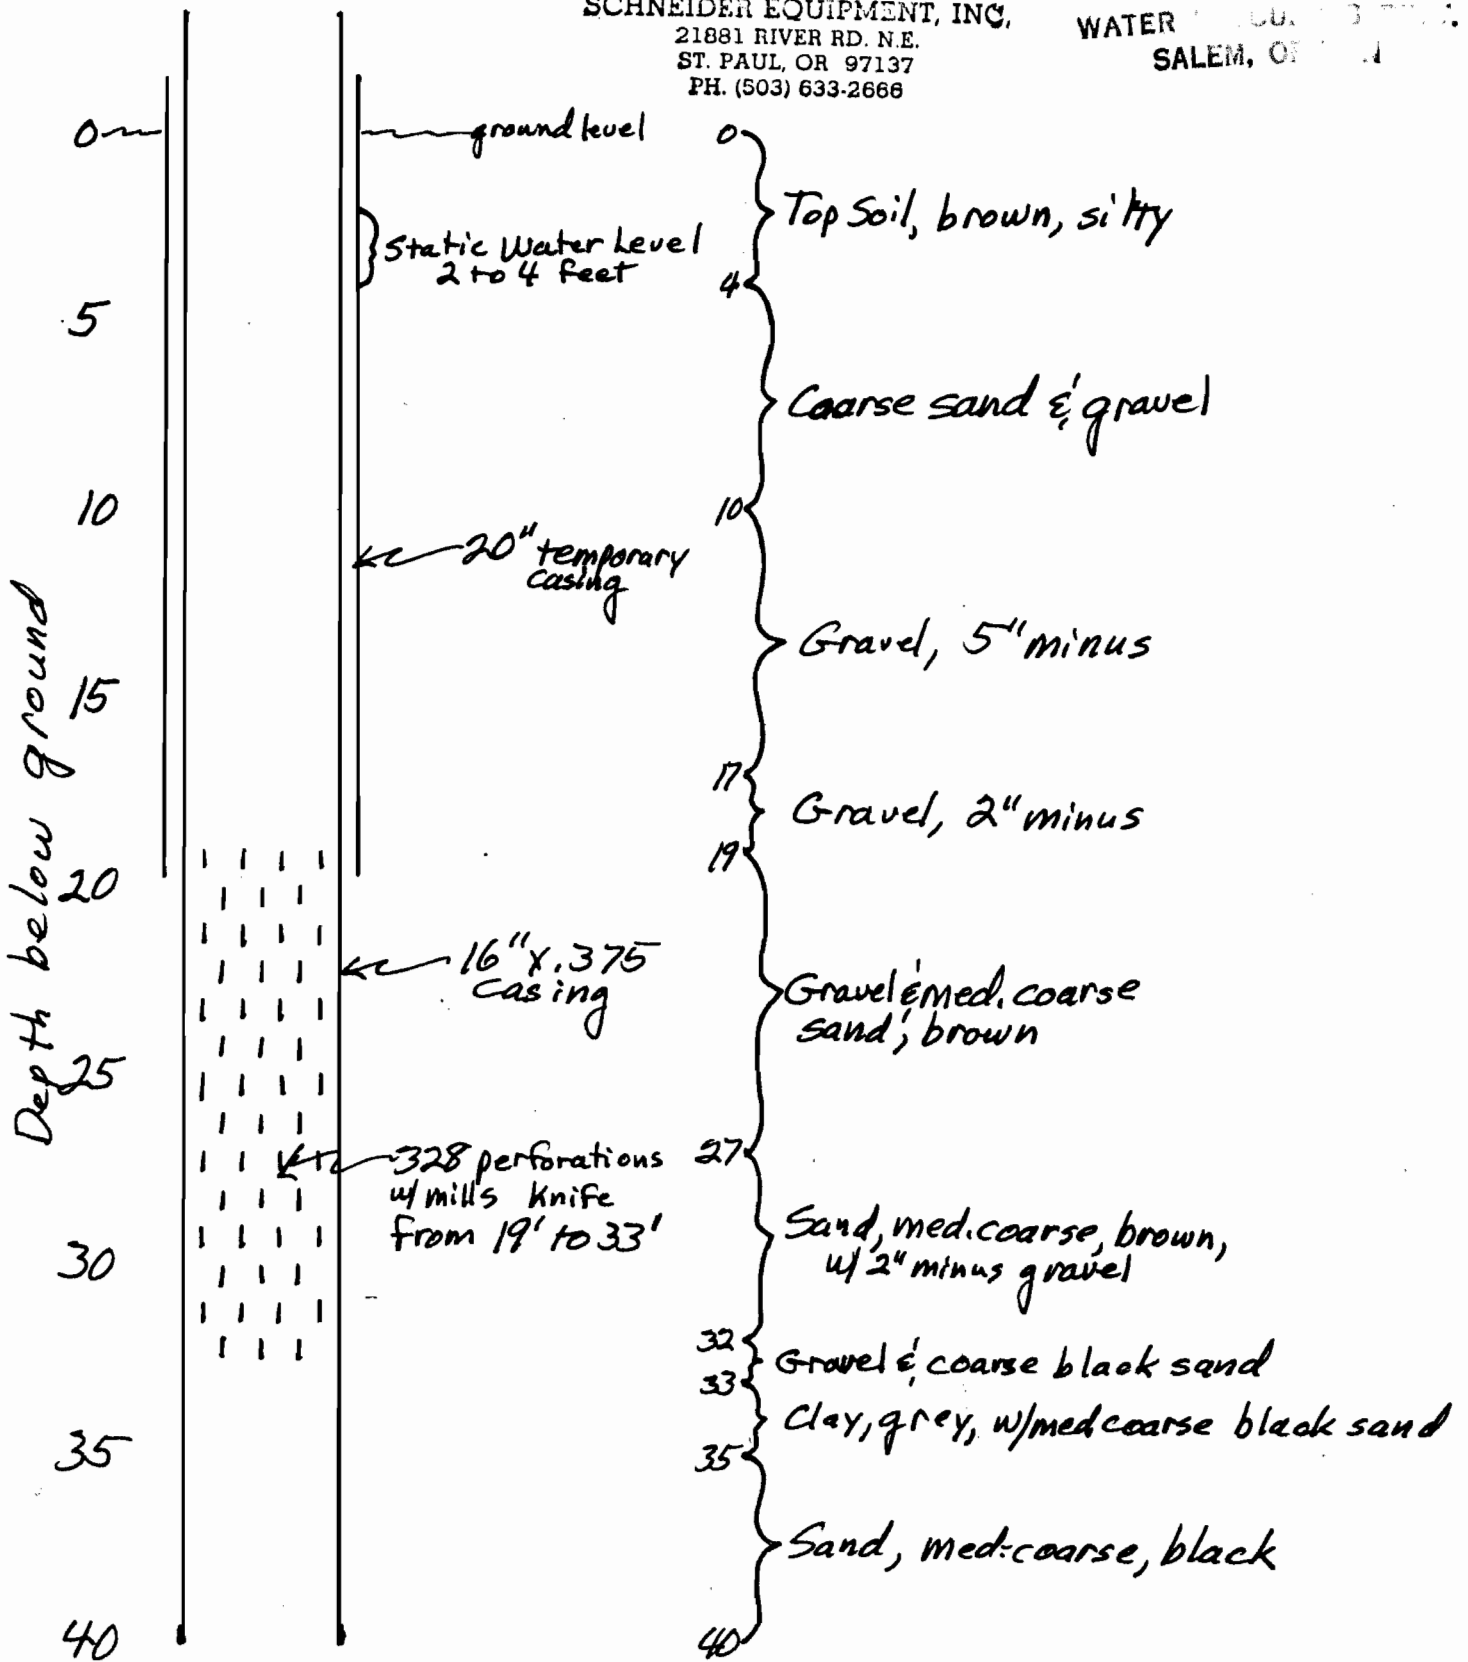 SCHNEIDER EQUIPMENT, INC.
21881 RIVER RD. N.E.
ST. PAUL, OR 97137
PH. (503) 633-2666
WATER
SALEM,
Depth below ground
0
5
10
15
20
25
30
35
40
ground level
Static Water Level
2 to 4 feet
20" temporary
casing
16" x .375
casing
328 perforations
w/ mills knife
from 19' to 33'
0
Top Soil, brown, silty
4
Coarse sand & gravel
10
Gravel, 5" minus
17
Gravel, 2" minus
19
Gravel & med. coarse
sand, brown
27
Sand, med. coarse, brown,
w/ 2" minus gravel
32
Gravel & coarse black sand
33
Clay, grey, w/med coarse black sand
35
Sand, med-coarse, black
40